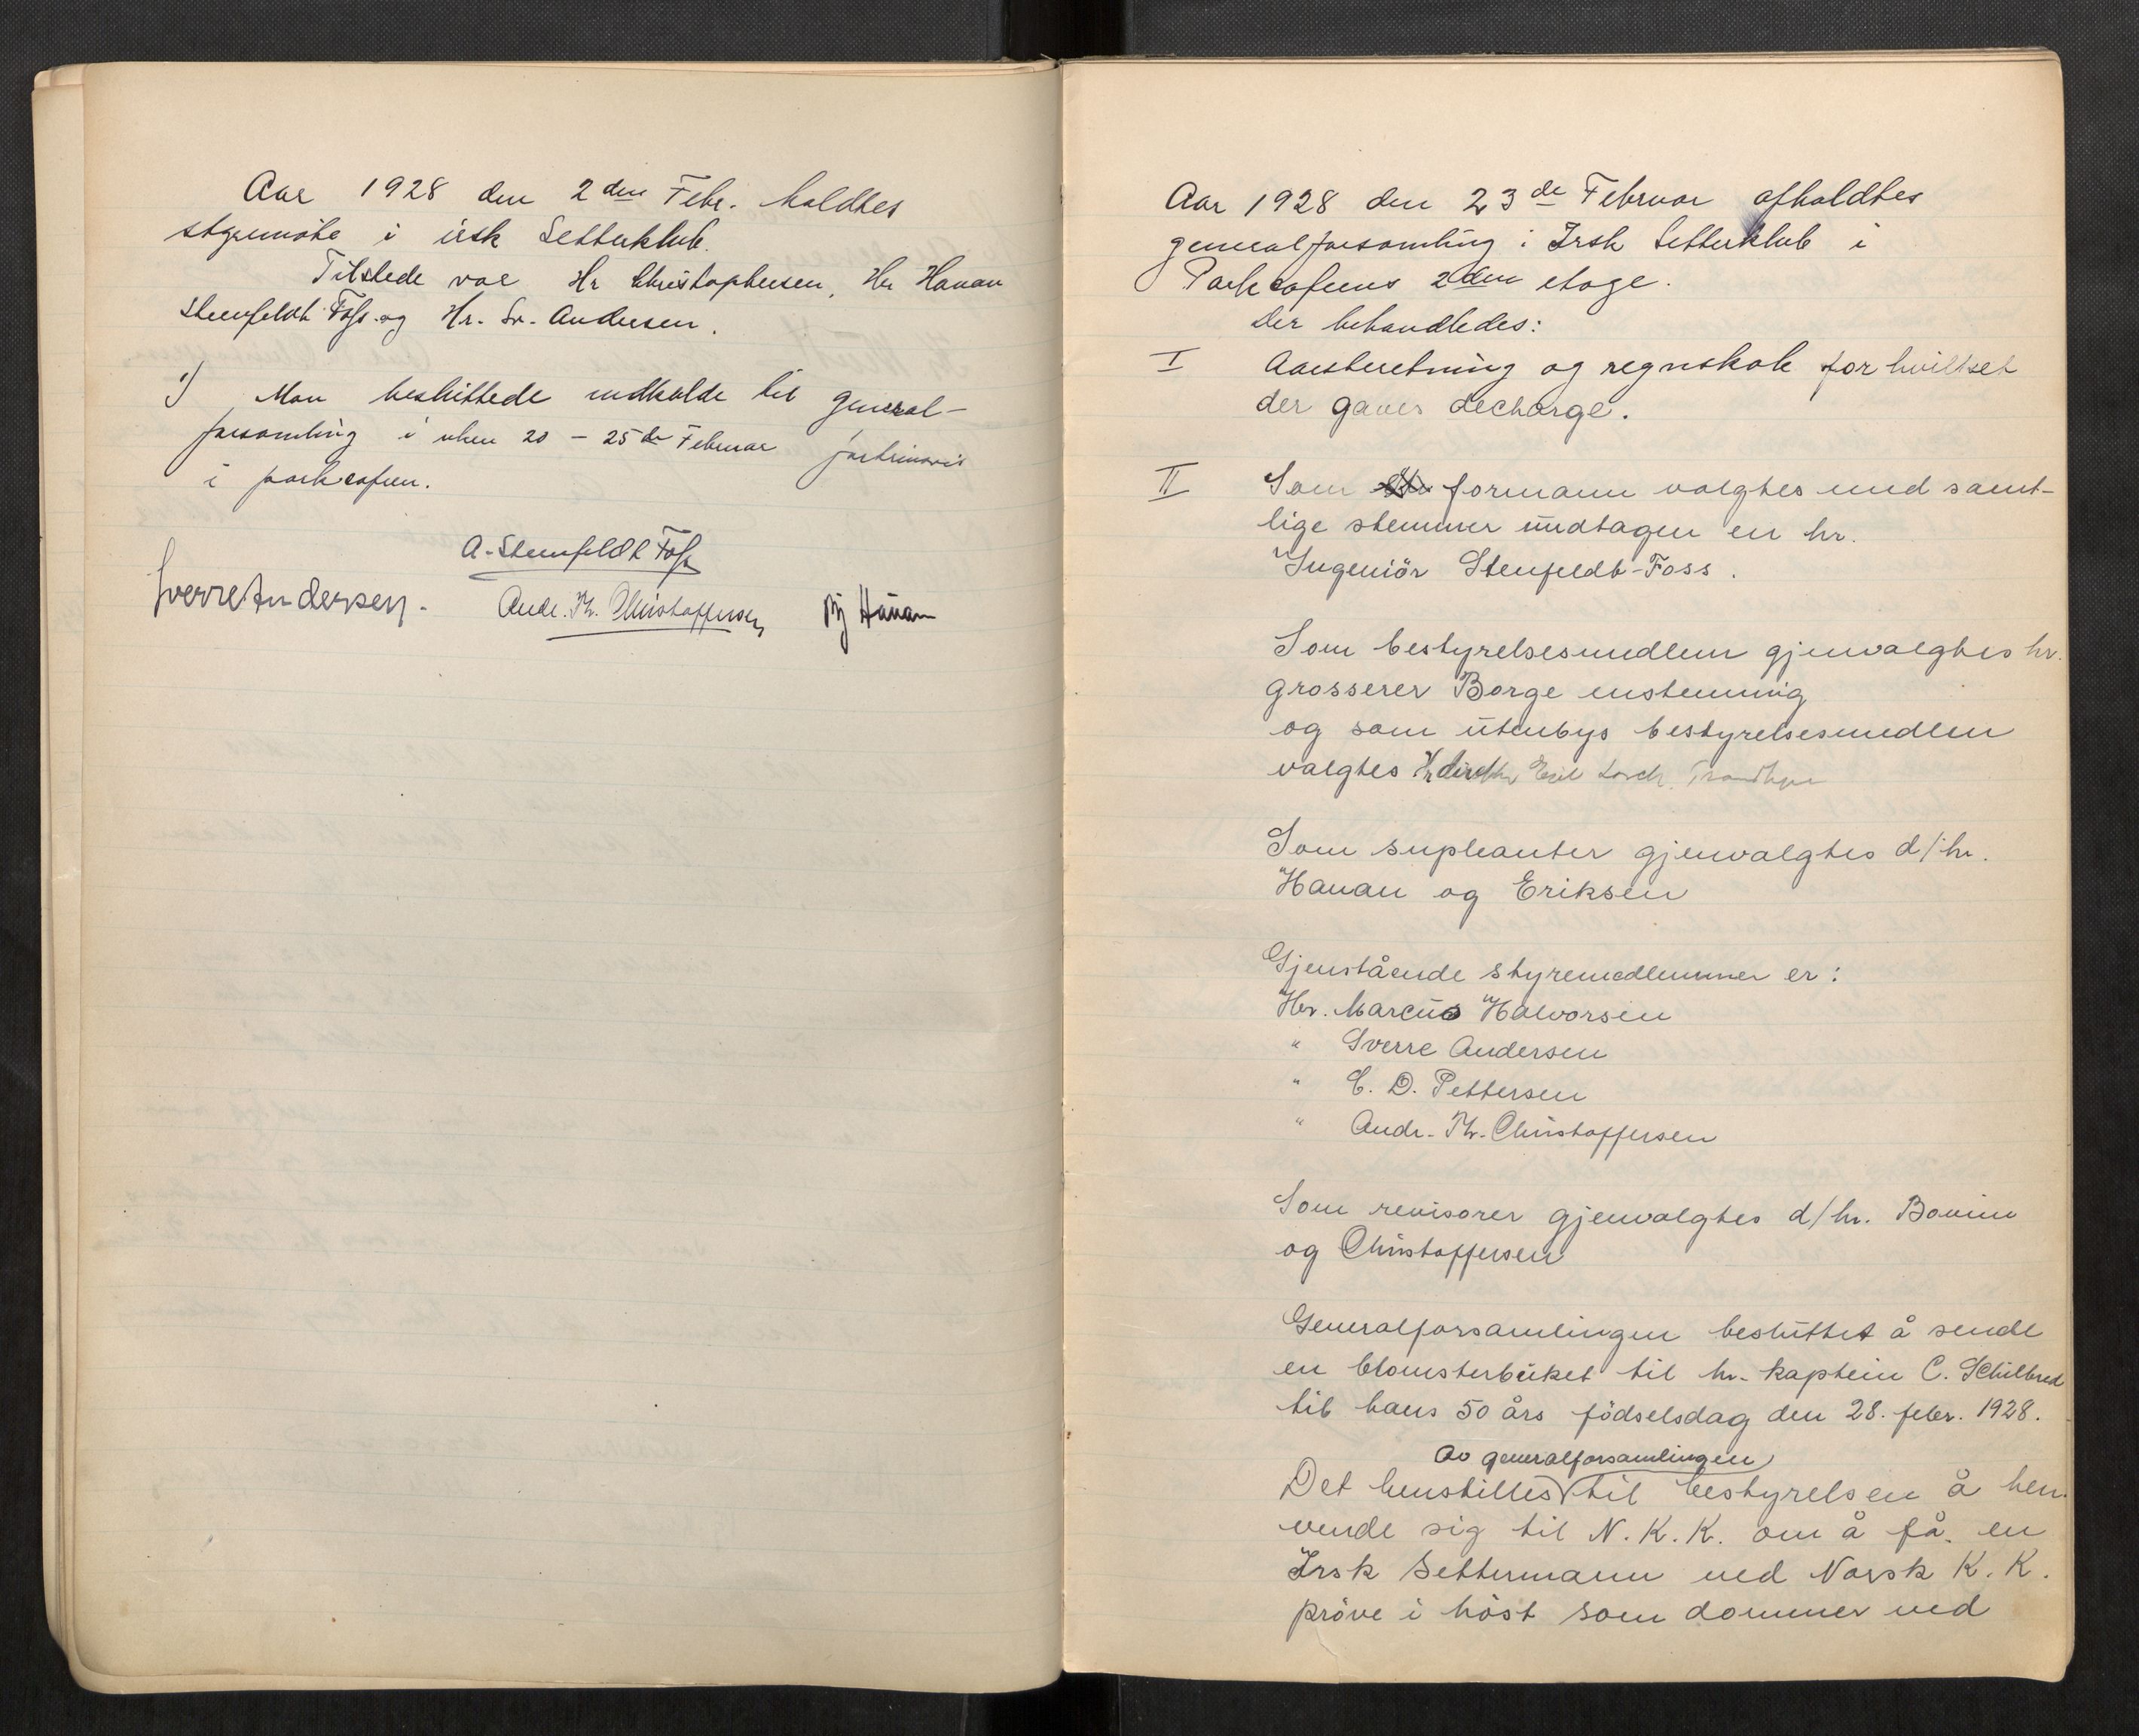 Aar 1928 den 2den Febr. holdtes
styremöte i irsk Setterklub.
Tilstede var Hr Christophersen, Hr Hauan
Stenfeldt Foss og Hr. Sv. Andersen.
1) Man besluttede indkalde til general-
forsamling i uken 20 - 25de Februar fortrinsvis
i parkcafeen.
A. Stenfeldt Foss
Sverre Andersen. Andr. Th. Christoffersen Hauan
Aar 1928 den 23de Februar afholdtes
generalforsamling i Irsk Setterklub i
Parkcafeens 2den etage.
Der behandledes:
I Aarsberetning og regnskab for hvilket
der gaves decharge.
II Som formann valgtes med samt-
lige stemmer undtagen en hr.
Ingeniör Stenfeldt-Foss.
Som bestyrelsesmedlem gjenvalgtes hr.
grosserer Borge enstemmig
og som utenbys bestyrelsesmedlem
valgtes Hr Trondhjem
Som supleanter gjenvalgtes d/hr.
Hauan og Eriksen
Gjenstående styremedlemmer er:
Hr. Marcus Halvorsen
" Sverre Andersen
" C. D. Pettersen
" Andr. Th. Christoffersen
Som revisorer gjenvalgtes d/hr.
og Christoffersen
Generalforsamlingen besluttet å sende
en blomsterbuket til hr. kaptein C. Schilbred
til hans 50 års födselsdag den 28. febr. 1928.
av generalforsamlingen
Det henstilles til bestyrelsen å hen-
vende sig til N.K.K. om å få en
Irsk Settermann ved Norsk K.K.
pröve i höst som dommer ved